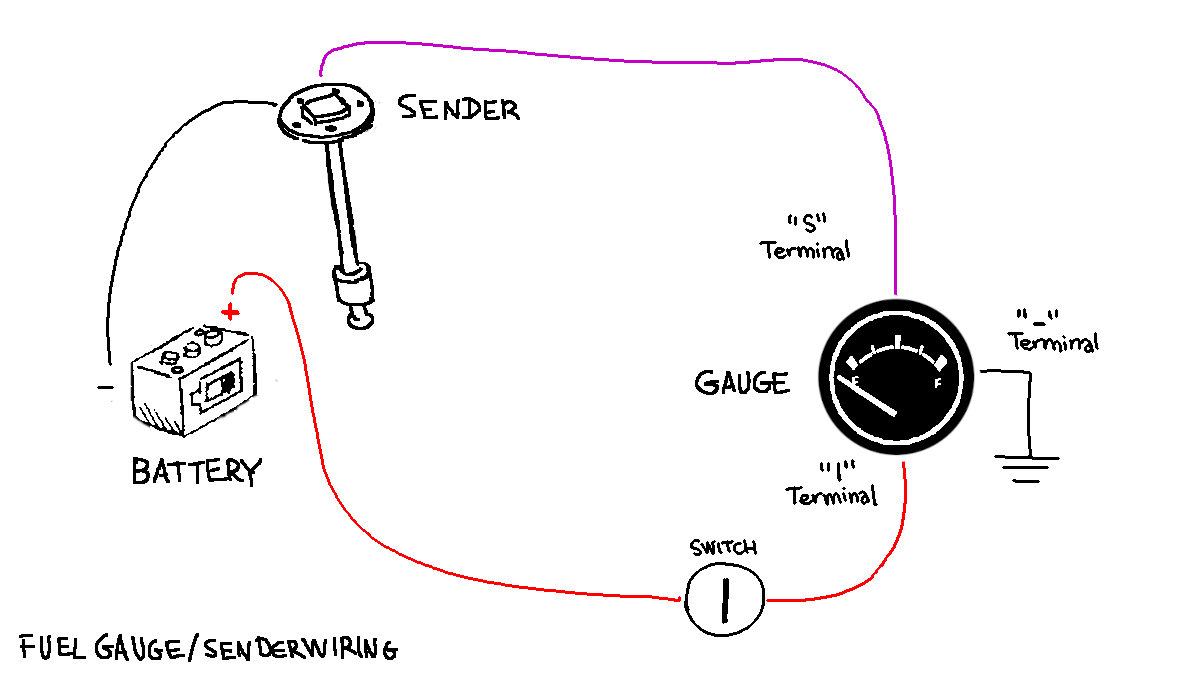 SENDER
"S"
Terminal
+
"-"
Terminal
GAUGE
E
F
-
BATTERY
"I"
Terminal
SWITCH
FUEL GAUGE/SENDERWIRING